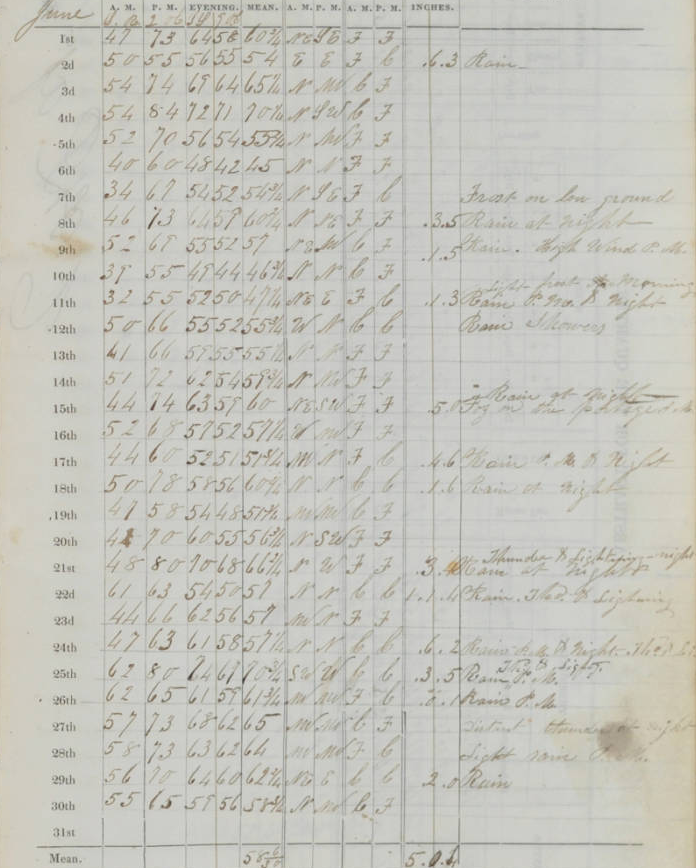 June
A. M. P. M. EVENING. MEAN. A. M. P. M. A. M. P. M. INCHES.
1st 47 73 64 58 60¾ NE SE F F
2d 50 55 56 55 54 E E F C .63 Rain
3d 54 74 69 64 65¼ N NW C F
4th 54 84 72 71 70¼ N SW C F
5th 52 70 56 54 N NW F F
6th 40 60 48 42 45 N N F F
7th 34 67 54 52 N SE F C Frost on low ground
8th 46 73 64 59 60½ N NE F F .35 Rain at night
9th 52 69 55 52 57 NE NW C F .15 Rain. High Wind P. M.
10th 39 55 49 44 46¾ N N C F
Light frost Morning
11th 32 55 52 50 47¼ NE E F C .13 Rain P. M. & Night
12th 50 66 55 52 55¾ W N C C Rain Showers
13th 41 66 59 55 55¼ N N F F
14th 51 72 62 54 59¾ N NW F F
Rain at night
15th 44 74 63 59 60 NE SW F F Fog on the
16th 52 68 57 52 57¼ W NW F F
17th 44 60 52 51 51¾ NW N F C .46 Rain P. M. & Night
18th 50 78 58 56 60½ N N C C .16 Rain at night
19th 47 58 54 48 51¾ NW NW C F
20th 70 60 55 56¾ N SW F F
Thunder & Lightning night
21st 48 80 70 68 66½ N W F F Rain at Night
22d 61 63 54 50 57 N N C C 1.14 Rain. Thd. & Lightning
23d 44 66 62 56 57 NW N F F
24th 47 63 61 58 57¼ N N C C .62 Rain P. M. & Night.
Thd & Lightg.
25th 62 80 74 67 70¾ SW W C C .35 Rain P. M.
26th 62 65 61 59 61¾ NW NW F C .01 Rain P. M.
27th 57 73 68 62 65 NW NW C F Distant thunder at night
28th 58 73 63 62 64 NW NW F C Light rain P. M.
29th 56 70 64 60 62½ NE E C C .20 Rain
30th 55 65 59 56 58¾ N NW C F
31st
Mean. 5.04